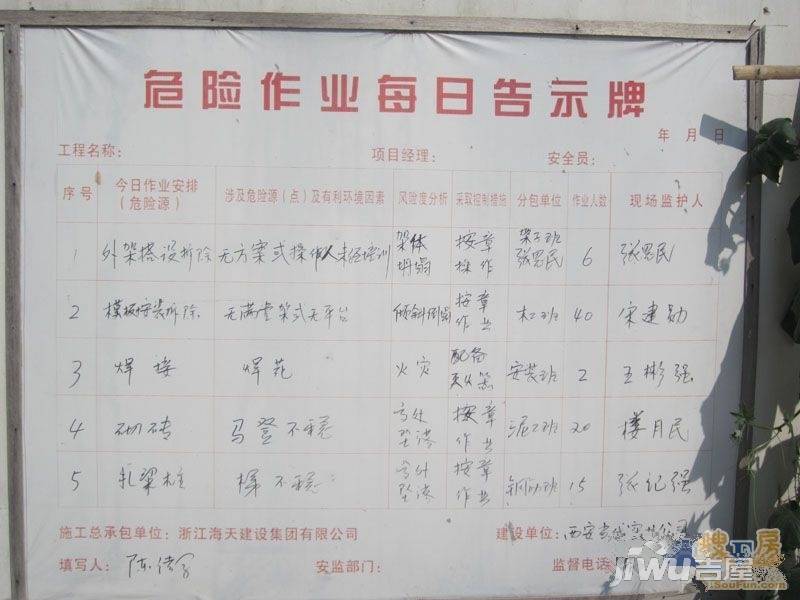 危险作业每日告示牌
年 月 日
工程名称： 项目经理： 安全员：
序号 今日作业安排（危险源） 涉及危险源（点）及有利环境因素 风险度分析 采取控制措施 分包单位 作业人数 现场监护人
1 外架搭设拆除 无方案或操作人未经培训 架体坍塌 按章操作 架子班张思民 6 张思民
2 模板安装拆除 无满堂架或无平台 倾斜倒塌 按章作业 木工班 40 宋建勋
3 焊接 焊花 火灾 配备灭火器 安装班 2 王彬强
4 砌砖 马登不稳 高处坠落 按章作业 泥工班 20 楼月民
5 扎梁柱 梯不稳 高处坠落 按章作业 钢筋班 15 张记强
施工总承包单位：浙江海天建设集团有限公司 建设单位：西安
填写人：陈 安监部门： 监督电话
搜房
SouFun.com
jiwu吉屋